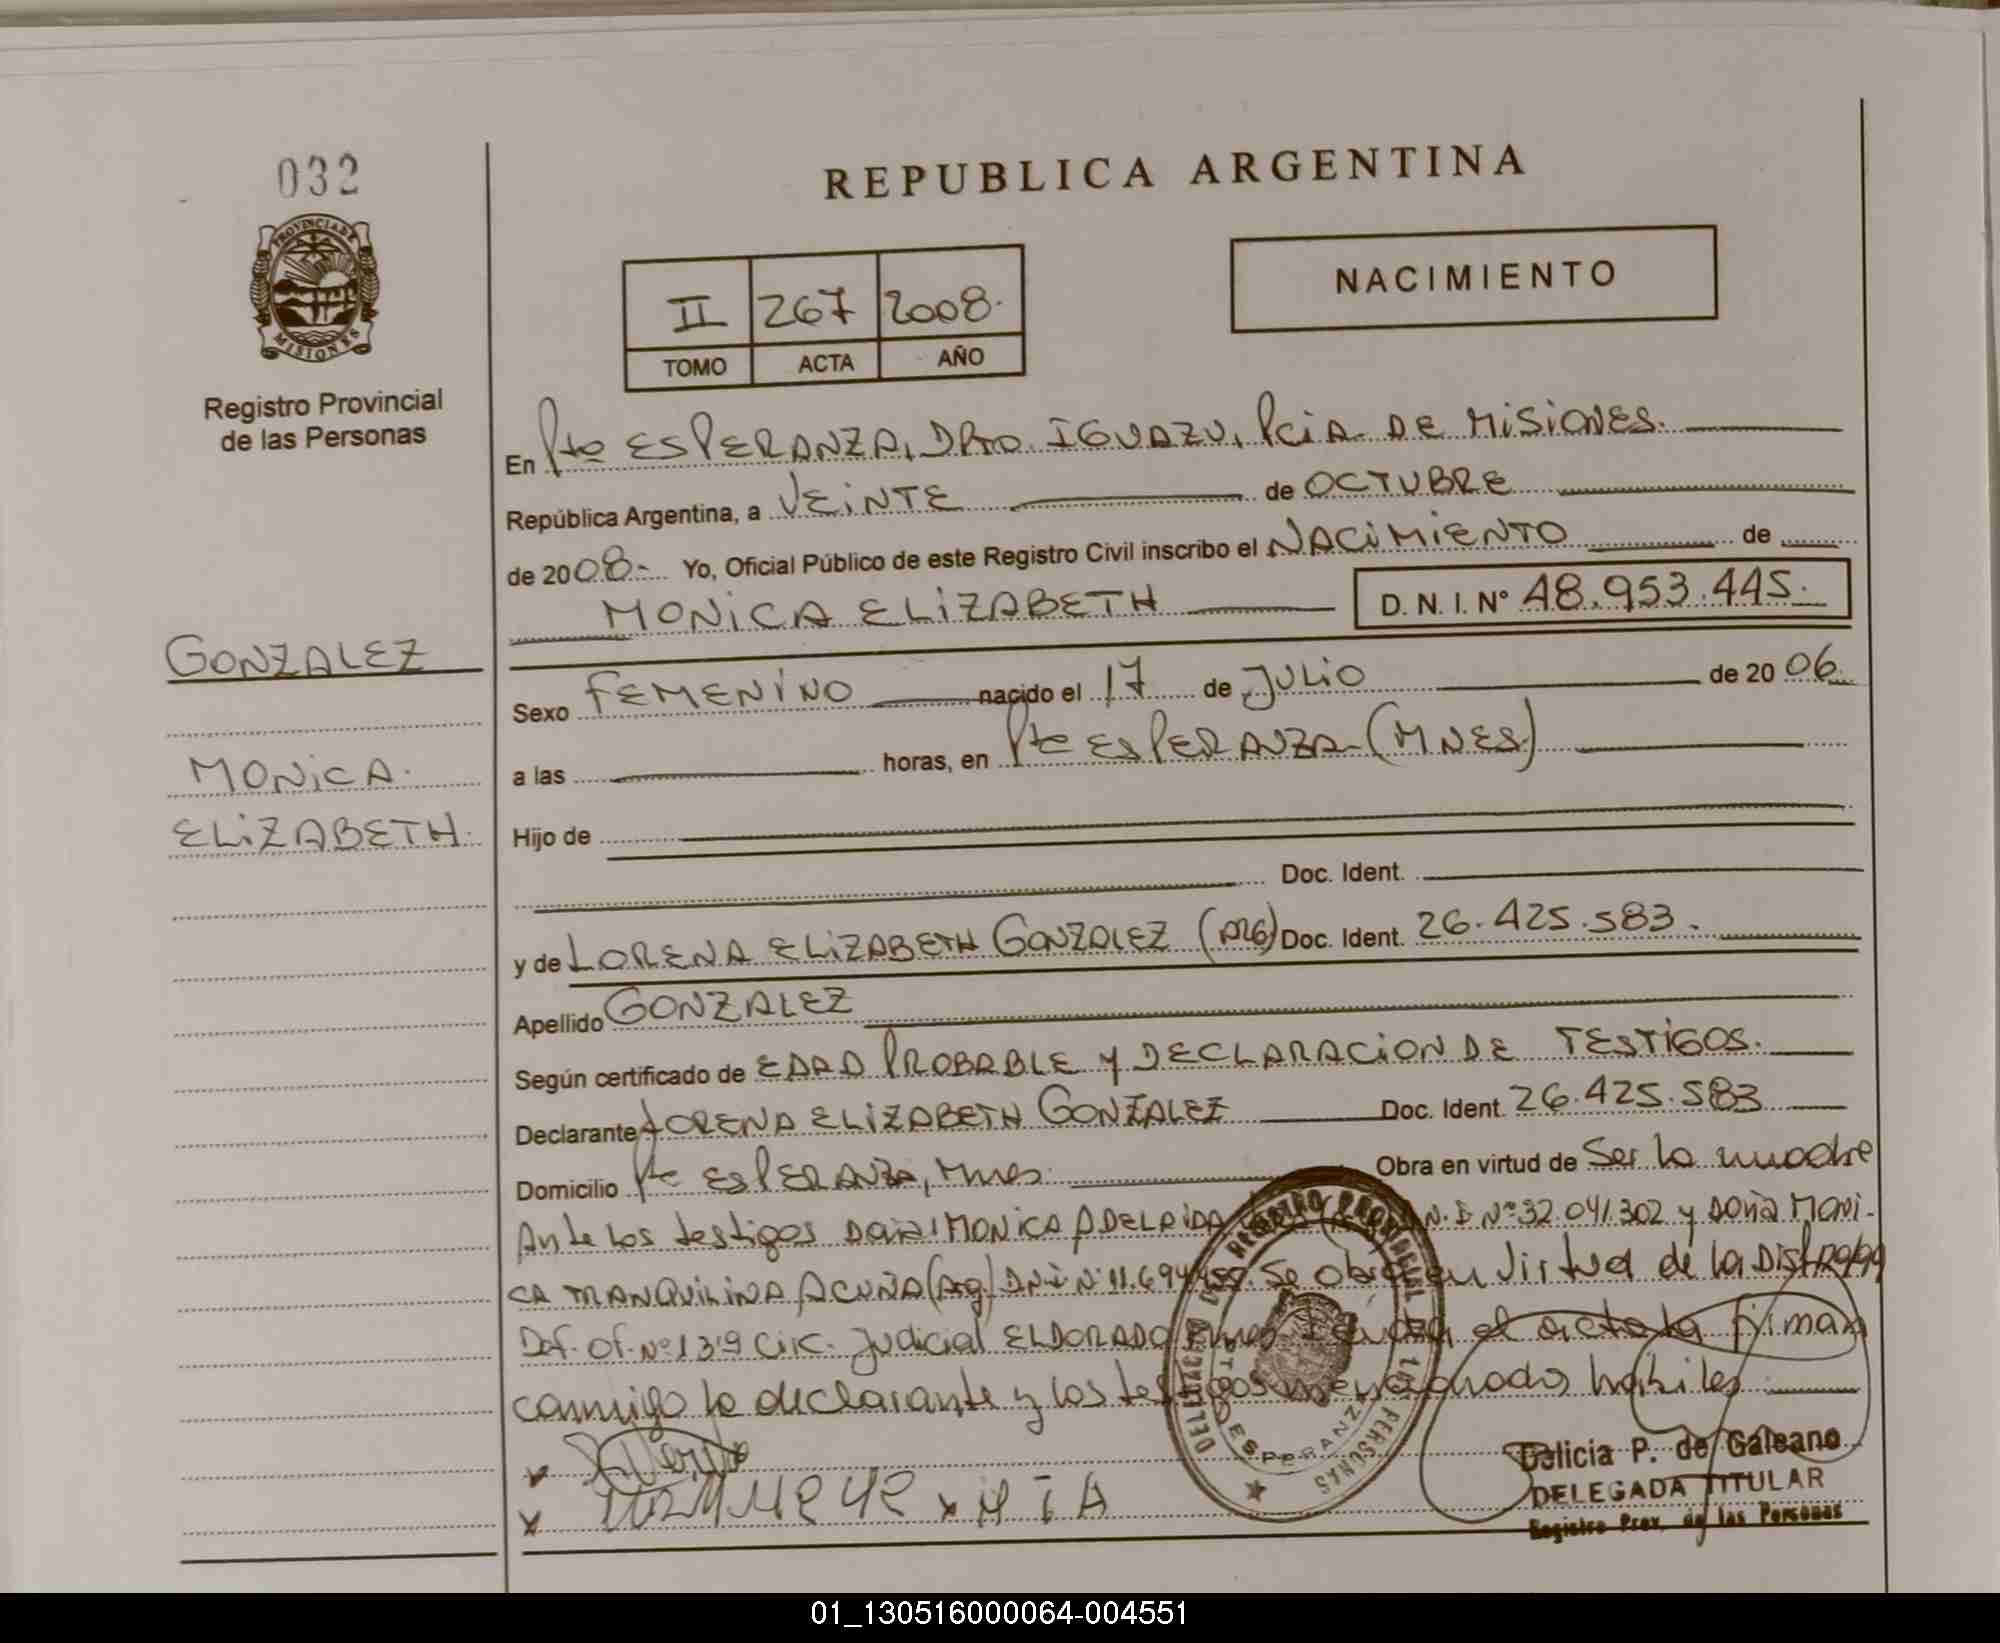 032
PROVINCIA DE
MISIONES
Registro Provincial
de las Personas
GONZALEZ
MONICA.
ELIZABETH.
REPUBLICA ARGENTINA
II 267 2008.
TOMO ACTA AÑO
NACIMIENTO
En Pto ESPERANZA, DPTO. IGUAZU, PCIA. DE MISIONES.
República Argentina, a VEINTE de OCTUBRE
de 2008.- Yo, Oficial Público de este Registro Civil inscribo el NACIMIENTO de
MONICA ELIZABETH D. N. I. Nº 48.953.445.
Sexo FEMENINO nacido el 17 de JULIO de 2006.
a las horas, en Pto ESPERANZA (MNES.)
Hijo de
Doc. Ident.
y de LORENA ELIZABETH GONZALEZ (ARG) Doc. Ident. 26.425.583.
Apellido GONZALEZ
Según certificado de EDAD PROBABLE Y DECLARACION DE TESTIGOS.
Declarante LORENA ELIZABETH GONZALEZ Doc. Ident. 26.425.583
Domicilio Pto ESPERANZA, Mnes. Obra en virtud de Ser la madre
Ante los testigos DOÑA MONICA ADELAIDA N.I Nº 32.041.302 y DOÑA MONI-
CA TRANQUILINA ACUÑA (Arg.) DNI Nº 11.694 Se obra en virtud de la
Def. Of. Nº 1 Circ. Judicial ELDORADO el acta la firman
conmigo la declarante y los testigos mencionados hábiles
Delicia P. de Galeano
DELEGADA TITULAR
Registro Prov. de las Personas
REGISTRO PROVINCIAL DE LAS PERSONAS
ESPERANZA
01_130516000064-004551